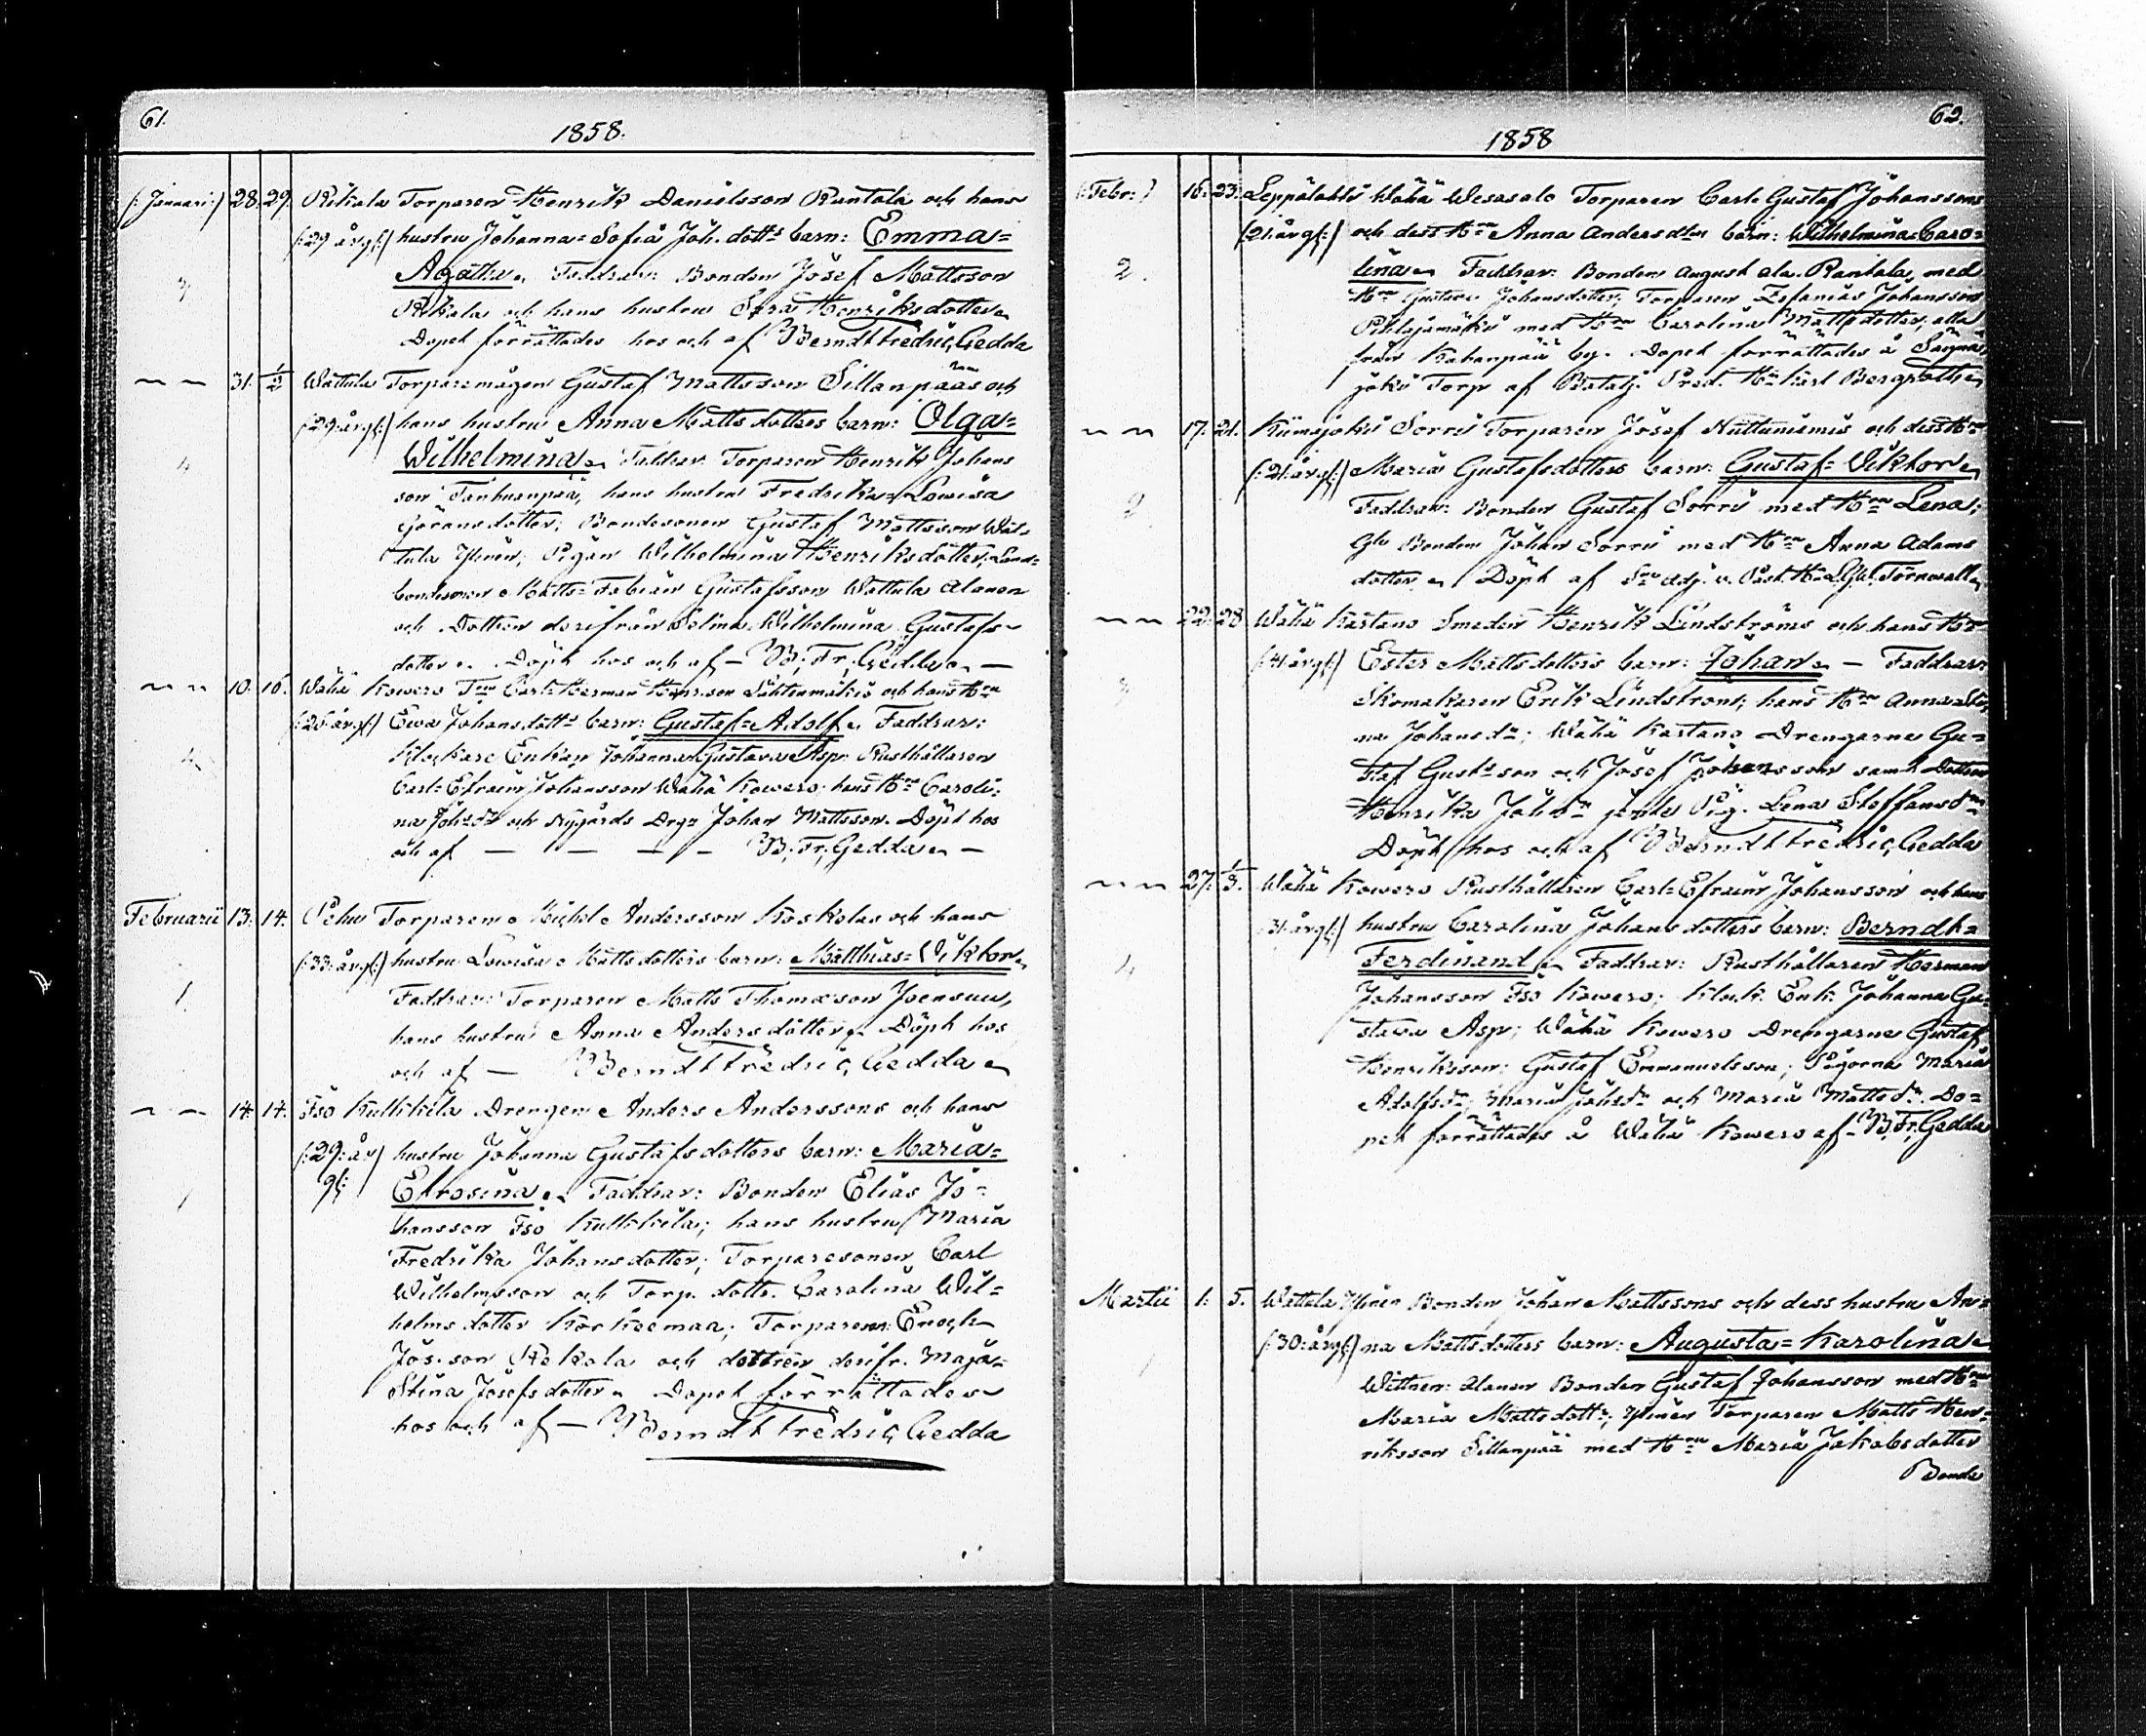 61.
1858.
(: Januari :) 28. 29. Rekola Torparen Henrik Danielsson Rantala och hans
(:29 årg:) hustru Johanna=Sofia Joh. dotts barn: Emma=
3 Agatha. Faddrar: Bonden Josef Mattsson
Rekola och hans hustru Sara Henriksdotter
Dopet förrättades hos och af Berndt Fredric Gedda
31. 1/2 Wattula Torparemågen Gustaf Mattsson Sillanpääs och
(:29:årg:) hans hustru Anna Matts dotters barn: Olga=
4 Wilhelmina. Faddrar Torparen Henrik Johans
son Tanhuanpää, hans hustru Fredrika=Lowisa
Göransdotter; Bondesonen Gustaf Mattsson Wat-
tula Ylinen; Pigan Wilhelmina Henriksdotter; Land-
bondesonen Matts=Fabian Gustafsson Wattula Alanen
och Dottren derifrån Selma Wilhelmina Gustafs-
dotter. Döpt hos och af — B: Fr: Gedda —
10. 16. Wähä Kowero Carl=Herman Henr.son Lähtenmäkis och hans Hu
(:26 årg:) Ewa Johansdotts barn: Gustaf=Adolf. Faddrar:
4 Klockare Enkan Johanna Gustava Asp; Rusthållaren
Carl=Efraim Johansson Wähä Kowero; hans Hu Caroli-
na och Nygårds Drg: Johan Mattsson. Döpt hos
och af — — — — B: Fr: Gedda —
Februarii 13. 14. Pehu Torparen Michel Andersson Koskelas och hans
(:33:årg:) hustru Lowisa Mattsdotters barn: Matthias=Viktor.
1 Faddrar: Torparen Matts Thomasson Joensuu,
hans hustru Anna Andersdotter. Döpt hos
och af — Berndt Fredric Gedda
14. 14. Iso Kulkkila Drengen Anders Anderssons och hans
(:29: år hustru Johanna Gustafsdotters barn: Maria=
g:) Efrosina. Faddrar: Bonden Elias Jo-
1 hansson Iso Kulkkila; hans hustru Maria
Fredrika Johansdotter; Torparesonen Carl
Wilhelmsson och Torp. dottr. Carolina Wil=
helms dotter Korkeemaa; Torparen Enoch
Jos.son Rekola och dottren derifr. Maja=
Stina Josefsdotter. Dopet förrättades
hos och af — Berndt Fredric Gedda
62.
1858
(: Febr: ) 16. 23. Leppälahti Wähä Wesasalo Torparen Carl Gustaf Johanssons
(:21:årg:) och dess Hu Anna Andersdtrs barn: Wilhelmina=Caro=
2. lina. Faddrar: Bonden August Ala=Rantala, med
Hu Gustava Johansdotter; Torparen Zefanias Johansson
med Hu Carolina Mattsdotter, alla
från Kahanpää by. Dopet förrättades å
joki Torp af Batalj. Pred. Hr Karl Bergroth.
17. 21. Kiimajoki Sorri Torparen Josef Huttuniemis och dess Hu
(:21:årg:) Maria Gustafsdotters barn: Gustaf=Viktor.
2 Faddrar: Bonden Gustaf Sorri med Hu Lena;
Bonden Johan Sorri med Hu Anna Adams
dotter. Döpt af Adj. v. Past. Törnwall
22. 28 Wähä Kartano Smeden Henrik Lindströms och hans Hu
(:41 årg:) Ester Mattsdotters barn: Johan. — Faddrar:
3 Skomakaren Erik Lindström; hans Hu Anna=Sti-
na Johansdr; Wähä Kartano Drengarne Gu-
staf Gusts son och Josef Johansson samt Dottren
Henrika jemte Pig. Lena Steffansdr
Döpt hos och af Berndt Fredric Gedda
27. 1/3. Wähä Kowero Rusthållaren Carl=Efraim Johansson och hans
(31:årg:) hustru Carolina Johans dotters barn: Berndt=
4 Ferdinand. Faddrar: Rusthållaren Herman
Johansson Iso Kowero; Klock. Enk. Johanna Gu-
stava Asp; Wähä Kowero Drengarne Gustaf
Henriksson; Gustaf Emmanuelsson; Pigorna Maria
Adolfsdr; Maria Johsdr och Maria Mattsdr. Do-
pet förrättades å Wähä Kowero af — B. Fr. Gedda
Martii 1. 5. Wattula Ylinen Bonden Johan Mattssons och dess hustru An-
(:30:årg:) na Mattsdotters barn: Augusta=Karolina.
1 Wittnen: Alanen Bonden Gustaf Johansson med Hu
Maria Mattsdottr; Ylinen Torparen Matts Hen-
riksson Sillanpää med Hu Maria Jakobsdotter
Bonde